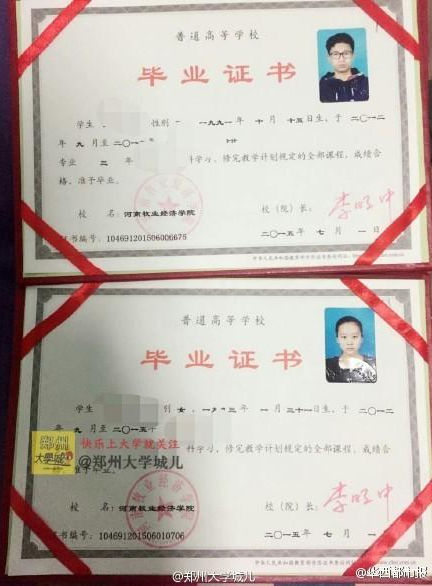 普通高等学校
毕业证书
学生 性别 一九九一年十月十五日生，于二〇一二
年九月至二〇一
专业 三 科学习，修完教学计划规定的全部课程，成绩合
格，准予毕业。
校 名：河南牧业经济学院 校（院）长：李明中
证书编号：104691201506006675 二〇一五年七月一日
普通高等学校
毕业证书
学生 别 女，一九 三年一月三十一日生，于二〇一二
年九月至二〇一五年
郑州
大学城儿
快乐上大学就关注
@郑州大学城儿
科学习，修完教学计划规定的全部课程，成绩
准予毕业。
校 名：河南牧业经济学院 校（院）长：李明中
104691201506010706 二〇一五年七月一
@郑州大学城儿
@华西都市报